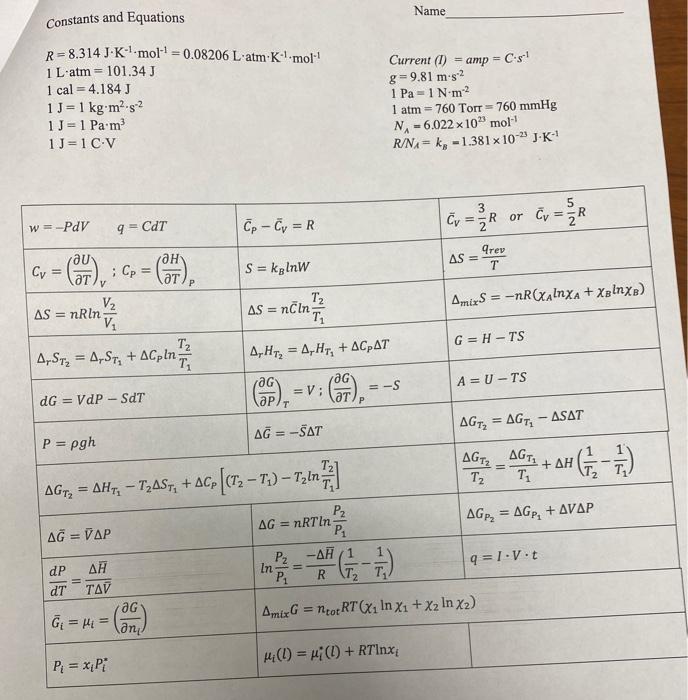 Constants and Equations
Name
R = 8.314 J·K⁻¹·mol⁻¹ = 0.08206 L·atm·K⁻¹·mol⁻¹
1 L·atm = 101.34 J
1 cal = 4.184 J
1 J = 1 kg·m²·s⁻²
1 J = 1 Pa·m³
1 J = 1 C·V
Current (I) = amp = C·s⁻¹
g = 9.81 m·s⁻²
1 Pa = 1 N·m⁻²
1 atm = 760 Torr = 760 mmHg
N_A = 6.022×10²³ mol⁻¹
R/N_A = k_B = 1.381×10⁻²³ J·K⁻¹
w = −PdV q = CdT
C̄_P − C̄_V = R
C̄_V = 3/2 R or C̄_V = 5/2 R
C_V = (∂U/∂T)_V ; C_P = (∂H/∂T)_P
S = k_B lnW
ΔS = q_rev/T
ΔS = nRln V₂/V₁
ΔS = nC̄ln T₂/T₁
Δ_mixS = −nR(χ_A lnχ_A + χ_B lnχ_B)
Δ_rS_T₂ = Δ_rS_T₁ + ΔC_P ln T₂/T₁
Δ_rH_T₂ = Δ_rH_T₁ + ΔC_PΔT
G = H − TS
dG = VdP − SdT
(∂G/∂P)_T = V ; (∂G/∂T)_P = −S
A = U − TS
P = ρgh
ΔḠ = −S̄ΔT
ΔG_T₂ = ΔG_T₁ − ΔSΔT
ΔG_T₂ = ΔH_T₁ − T₂ΔS_T₁ + ΔC_P [(T₂ − T₁) − T₂ln T₂/T₁]
ΔG_T₂/T₂ = ΔG_T₁/T₁ + ΔH (1/T₂ − 1/T₁)
ΔḠ = V̄ΔP
ΔG = nRTln P₂/P₁
ΔG_P₂ = ΔG_P₁ + ΔVΔP
dP/dT = ΔH̄/TΔV̄
ln P₂/P₁ = −ΔH̄/R (1/T₂ − 1/T₁)
q = I · V · t
Ḡ_i = μ_i = (∂G/∂n_i)
Δ_mixG = n_tot RT(χ₁ ln χ₁ + χ₂ ln χ₂)
P_i = x_iP_i*
μ_i(l) = μ_i*(l) + RTlnx_i